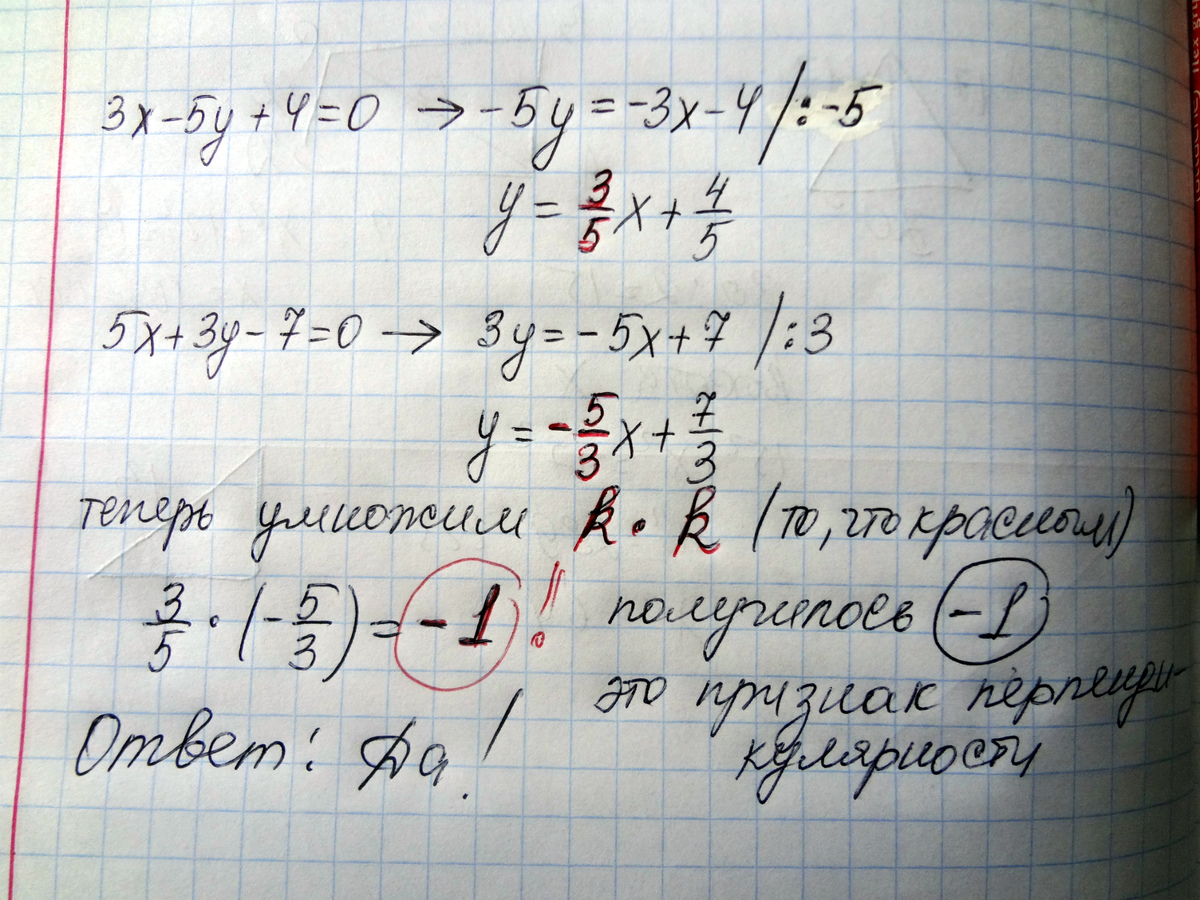 3x-5y+4=0 → -5y=-3x-4 /:-5
y = 3/5 x + 4/5
5x+3y-7=0 → 3y=-5x+7 /:3
y = -5/3 x + 7/3
теперь умножим k · k (то, что красным)
3/5 · (-5/3) = -1 ! получилось -1
это признак перпенди-
кулярности
Ответ: Да!